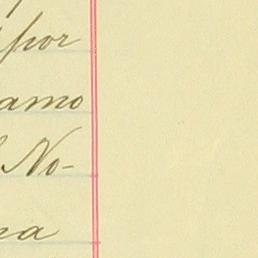 por
amo
No-
na